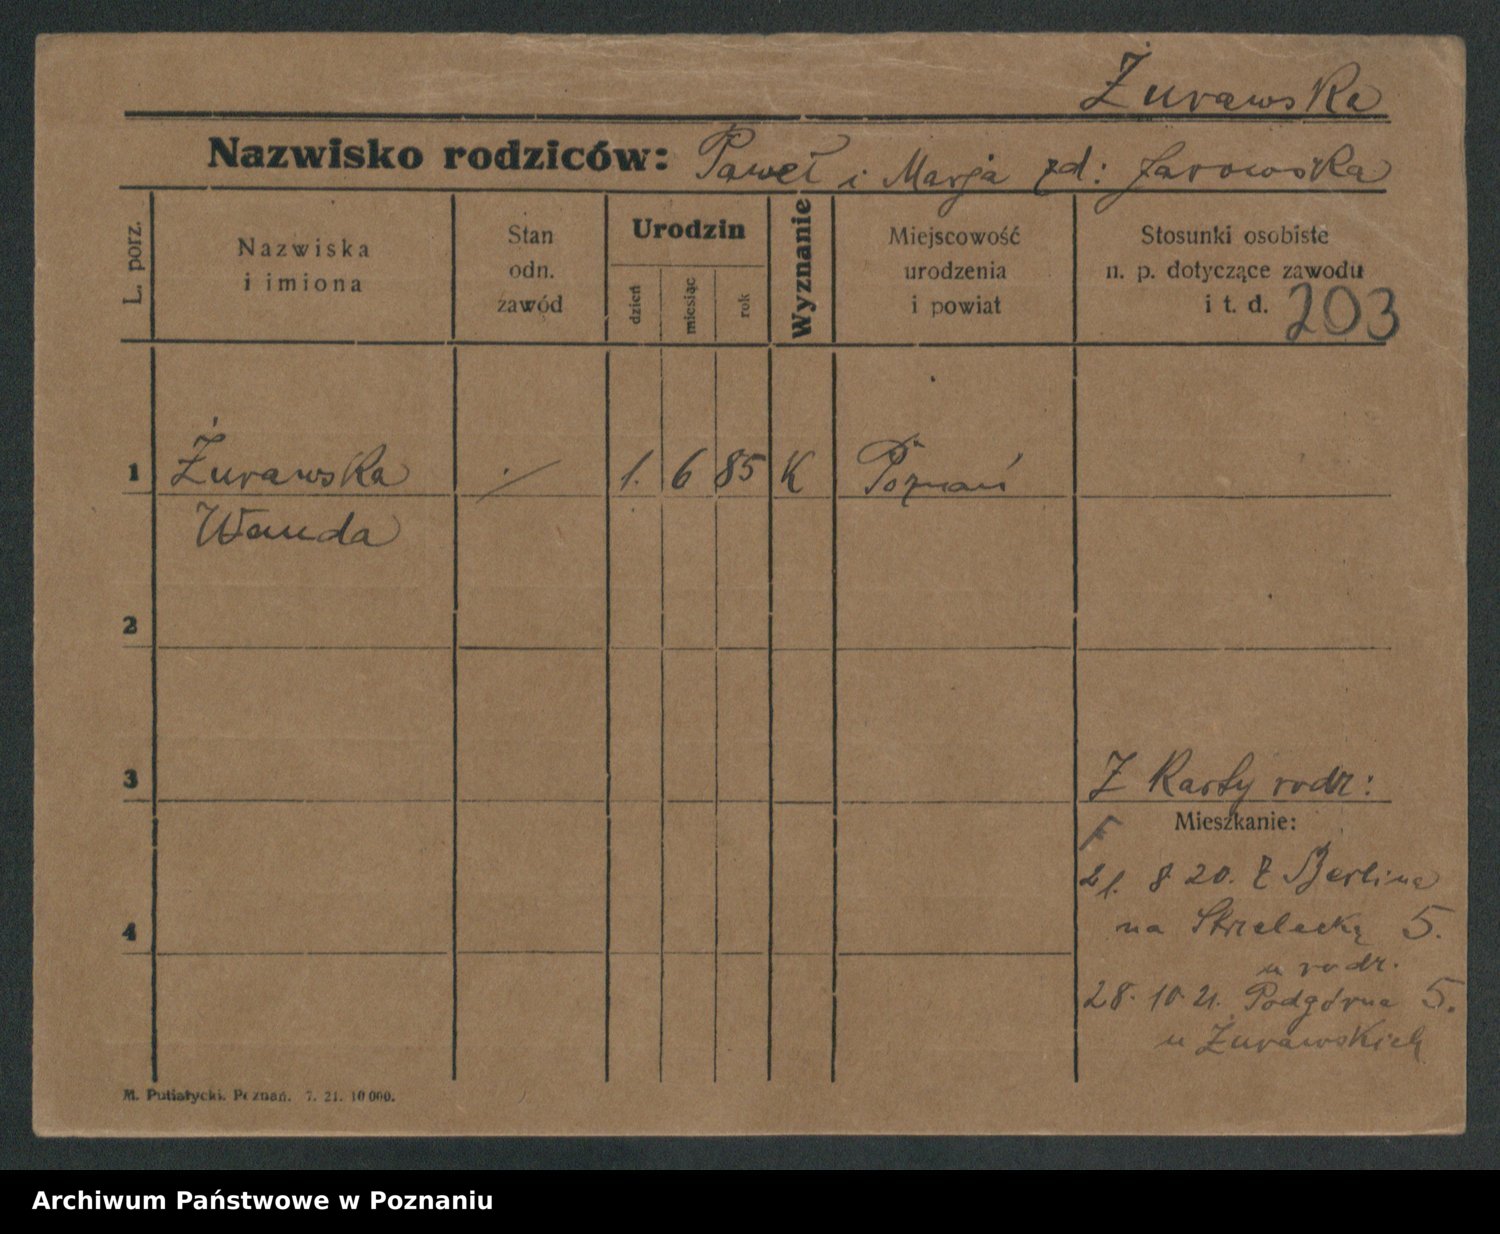 Żurawska
Nazwisko rodziców: Paweł i Marja zd: Jarowska
L. porz.
Nazwiska
i imiona
Stan
odn.
zawód
Urodzin
dzień
miesiąc
rok
Wyznanie
Miejscowość
urodzenia
i powiat
Stosunki osobiste
n. p. dotyczące zawodu
i t. d. 203
1 Żurawska ./ 1. 6 85 K Poznań
Wanda
2
3
Z Karty rodz:
Mieszkanie:
F
21. 8 20. Z Berlina
na Strzelecką 5.
4
u rodz.
28. 10 21. Podgórna 5.
u Żurawskich
M. Putiatycki. Poznań. 7. 21. 10 000.
Archiwum Państwowe w Poznaniu